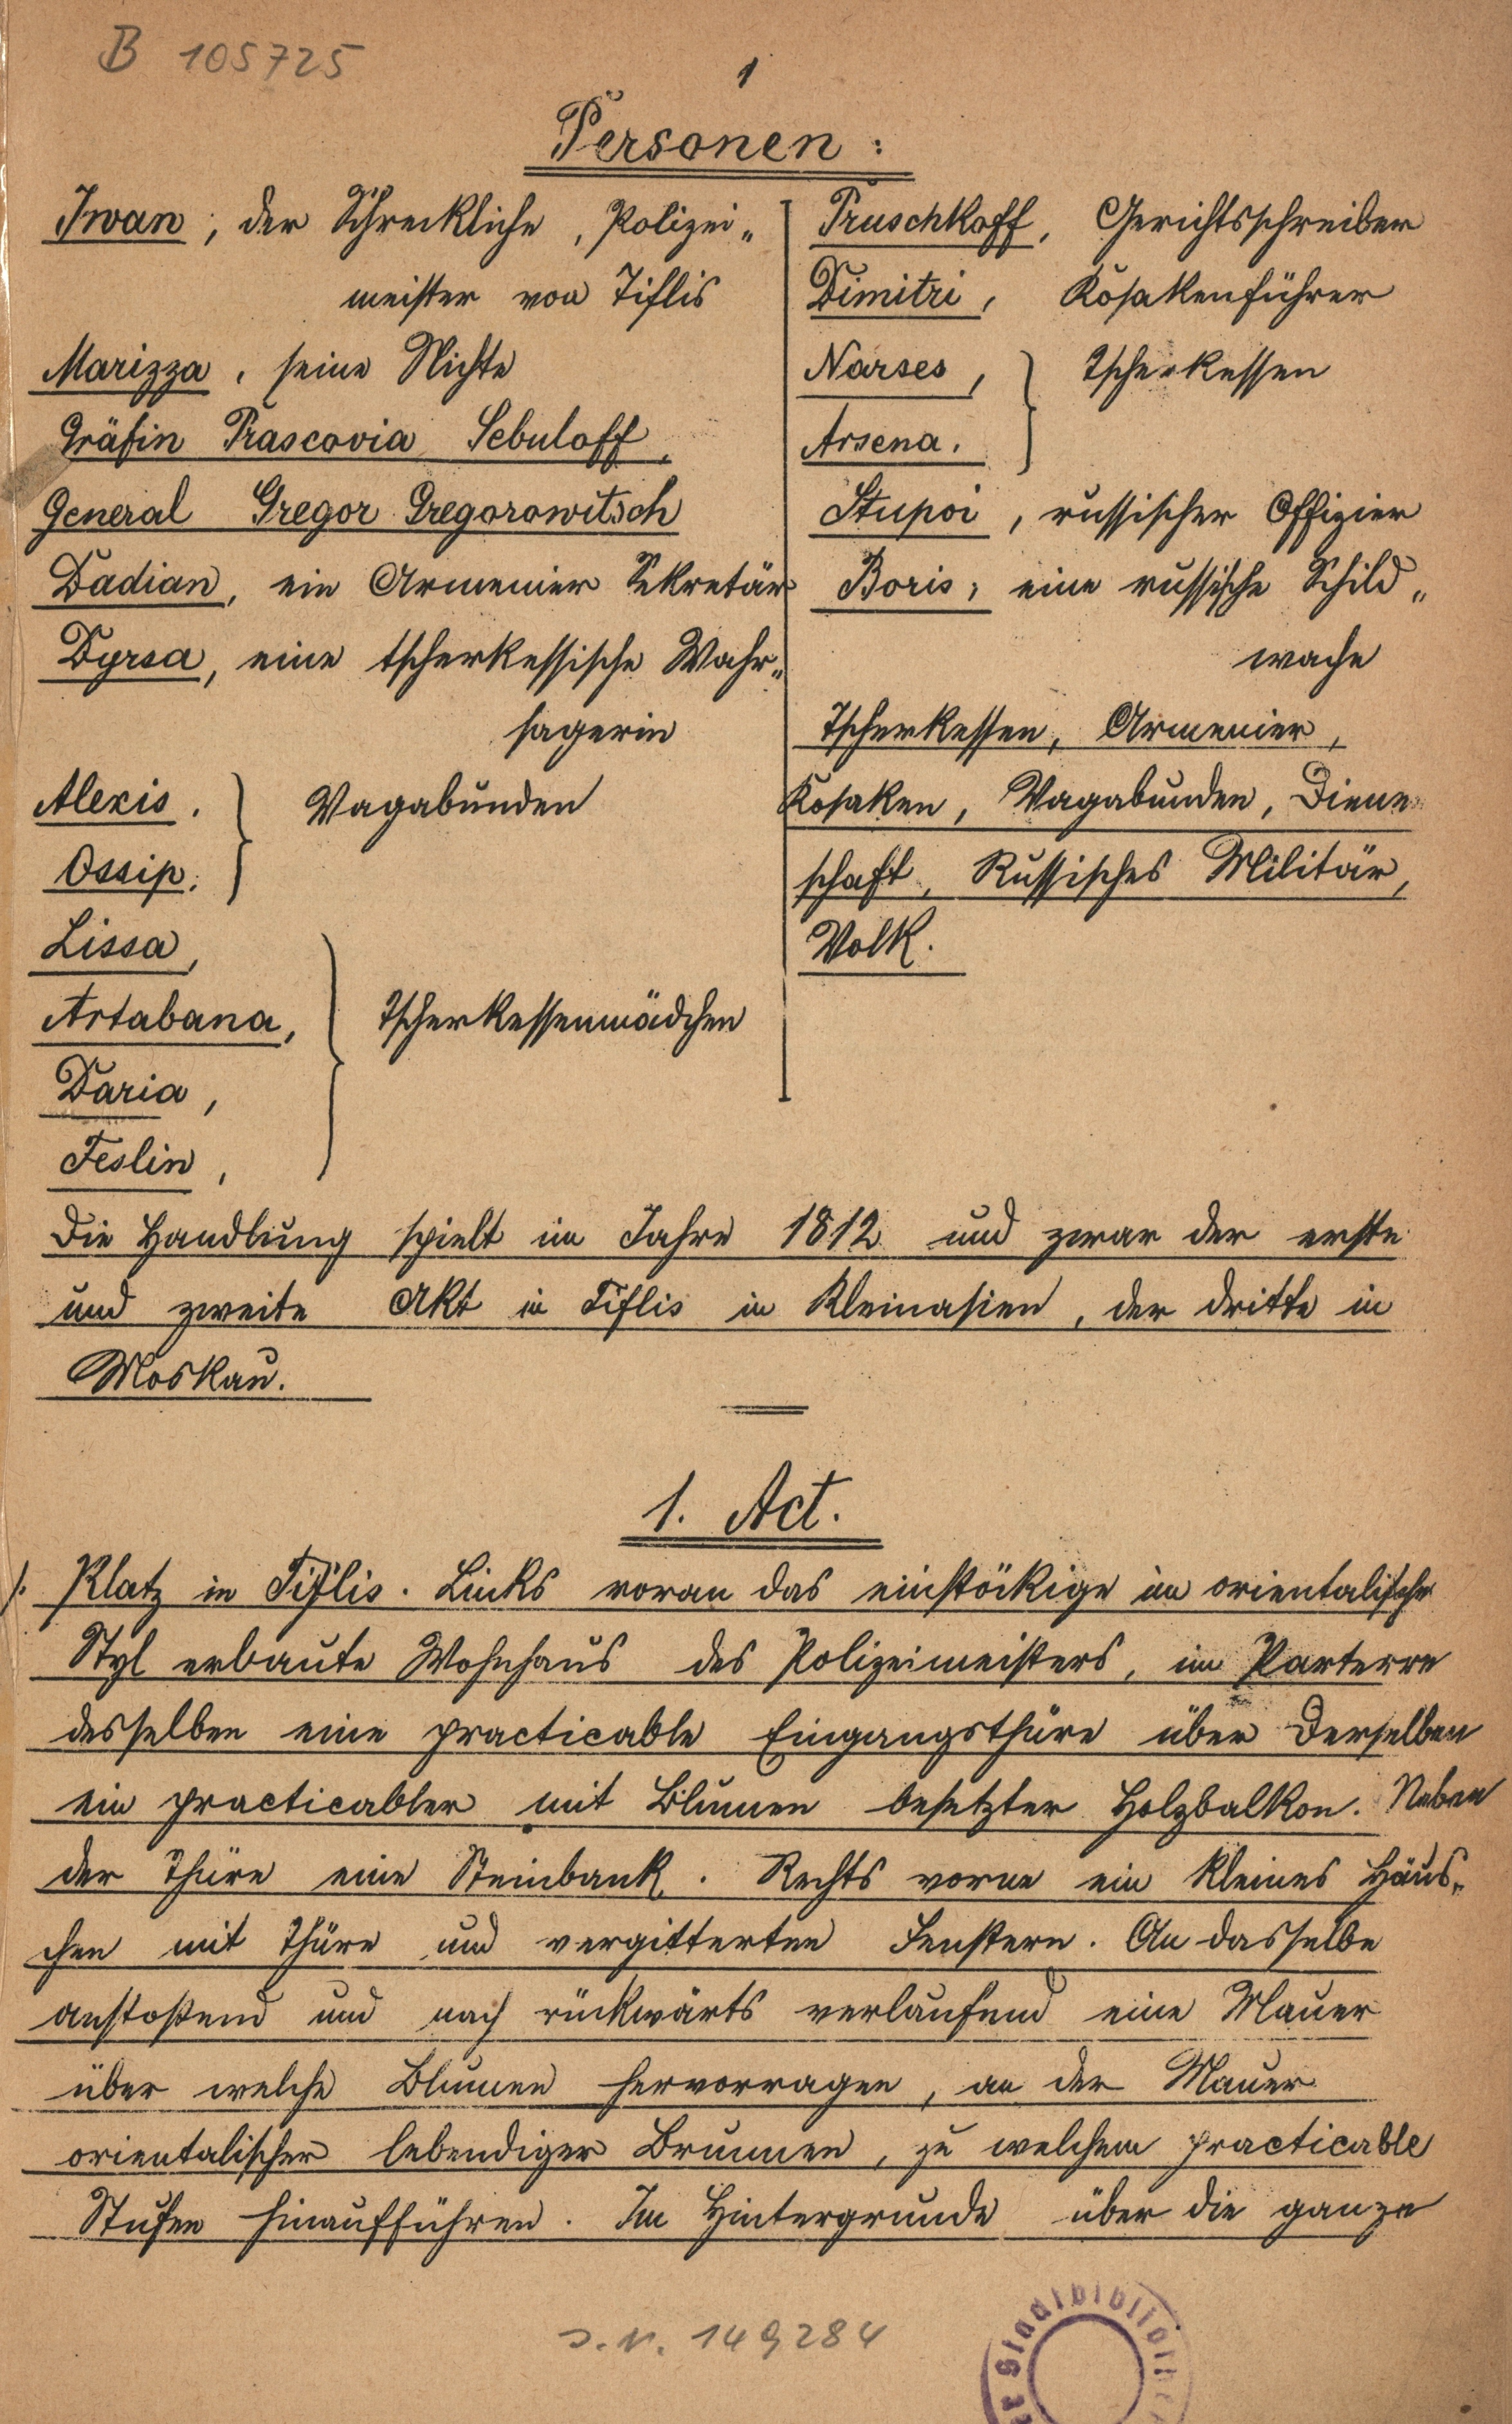 B 105725
1
Personen:
Iwan, der Schreckliche, Polizei„
meister von Tiflis
Marizza, seine Nichte
Gräfin Prascovia Sebuloff,
General Gregor Gregorowitsch
Dadian, ein Armenier Sekretär
Dyrsa, eine tscherkessische Wahr„
sagerin
Alexis,
Vagabunden
Ossip,
Lissa,
Artabana,
Tscherkessenmädchen
Daria,
Feslin,
Pruschkoff, Gerichtsschreiber
Dimitri, Kosakenführer
Narses,
Tscherkessen
Arsena,
Stupoi, russischer Offizier
Boris, eine russische Schild„
wache
Tscherkessen, Armenier,
Kosaken, Vagabunden, Diene
schaft, Russisches Militär,
Volk.
Die Handlung spielt im Jahre 1812 und zwar der erste
und zweite Akt in Tiflis in Kleinasien, der dritte in
Moskau.
1. Act.
/: Platz in Tiflis. Links voran das einstöckige im orientalische
Styl erbaute Wohnhaus des Polizeimeisters, im Parterre
desselben eine practicable Eingangsthüre über derselben
ein practicabler mit Blumen besetzter Holzbalkon. Neben
der Thüre eine Steinbank. Rechts vorne ein kleines Häus„
chen mit Thüre und vergitterten Fenstern. An dasselbe
anstoßend und nach rückwärts verlaufend eine Mauer
über welche Blumen hervorragen, an der Mauer
orientalischer lebendiger Brunnen, zu welchem practicable
Stufen hinaufführen. Im Hintergrunde über die ganze
J.N. 149284
Stadtbibliothek